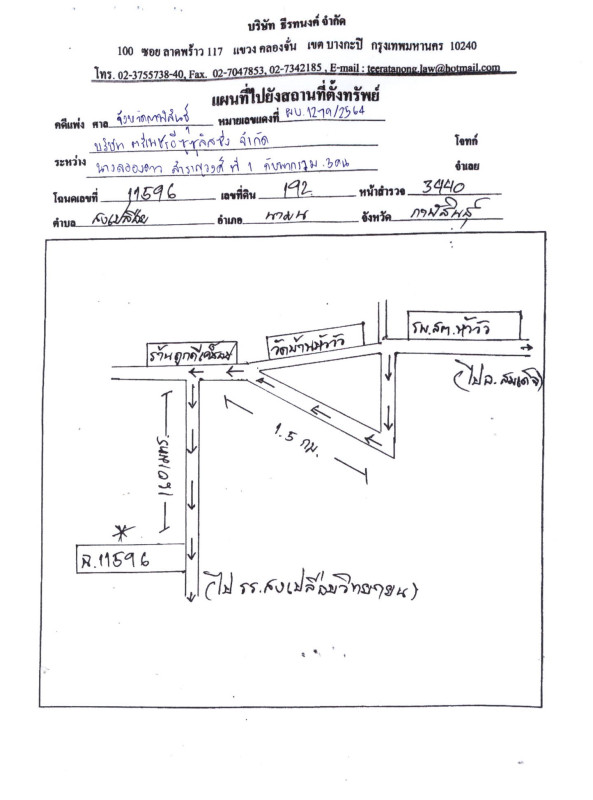 บริษัท ธีรทนงค์ จำกัด
100 ซอย ลาดพร้าว 117 แขวง คลองจั่น เขต บางกะปิ กรุงเทพมหานคร 10240
โทร. 02-3755738-40, Fax. 02-7047853, 02-7342185 , E-mail : teeratanong.law@hotmail.com
แผนที่ไปยังสถานที่ตั้งทรัพย์
คดีแพ่ง ศาล จังหวัดกาฬสินธุ์ หมายเลขแดงที่ ผบ.1279/2564
บริษัท ตรีเพชรอีซูซุลิสซิ่ง จำกัด โจทก์
ระหว่าง ที่ 1 กับพวกรวม 3 คน จำเลย
โฉนดเลขที่ 11596 เลขที่ดิน 192 หน้าสำรวจ 3440
ตำบล สงเปลือย อำเภอ นามน จังหวัด กาฬสินธุ์
รพ.สต.หัวงัว
วัดบ้านหัวงัว
ร้านถูกดี
(ไป อ. สมเด็จ)
1.5 กม.
เมตร
ฉ.11596
(ไป รร.สงเปลือยวิทยายน)